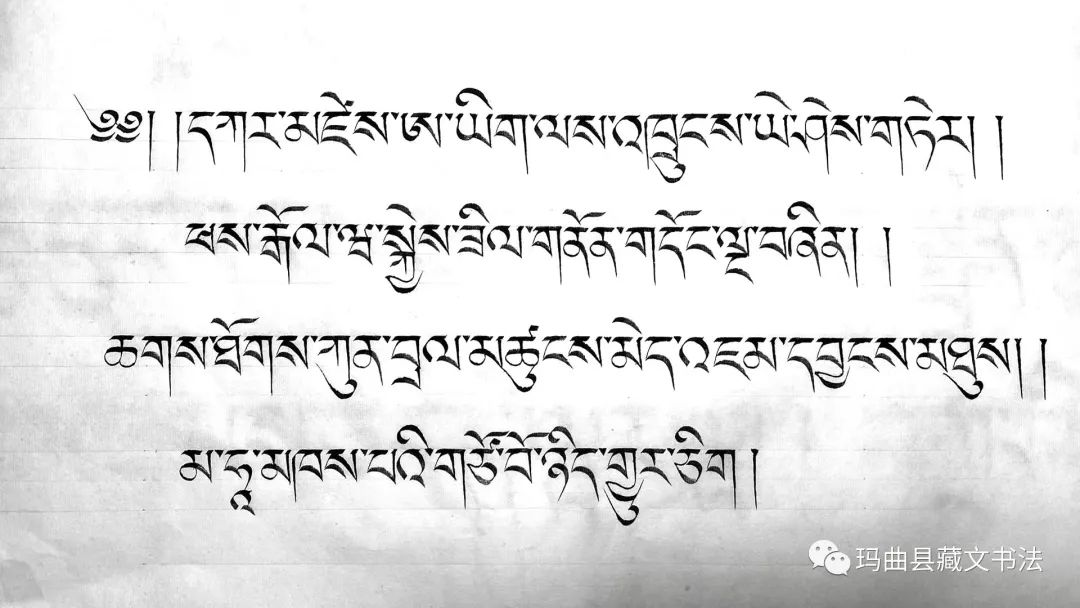 ༄༅། །དཀར་མཛེས་ཨ་ཡིག་ལས་འཁྲུངས་ཡེ་ཤེས་གཏེར། །
ཕས་རྒོལ་ཝ་སྐྱེས་ཟིལ་གནོན་གདོང་ལྔ་བཞིན། །
ཆགས་ཐོགས་ཀུན་བྲལ་མཚུངས་མེད་འཇམ་དབྱངས་མཐུས། །
མ་ཧཱ་མཁས་པའི་གཙོ་བོ་ཉིད་གྱུར་ཅིག །
玛曲县藏文书法